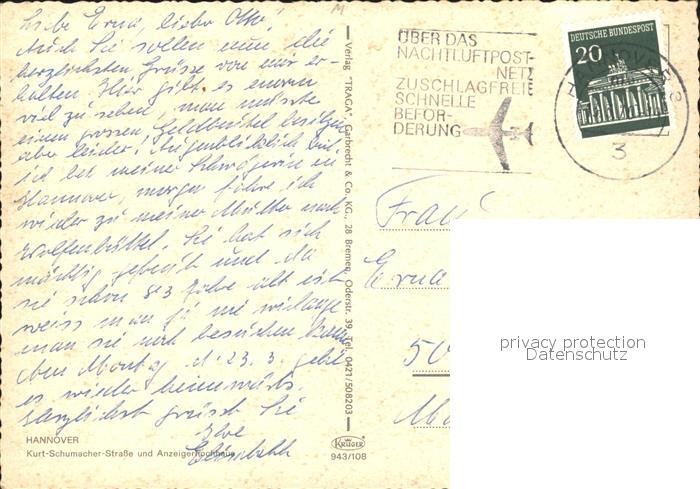 Liebe Erna, lieber Otto!
Auch Sie sollen nun die
herzlichsten Grüsse von mir er-
halten. Hier gibt es enorm
viel zu sehen, man müsste
einen grossen Geldbeutel besitzen
aber leider! Augenblicklich bin
ich bei meiner Schwägerin in
Hannover, morgen fahre ich
wieder zu meiner Mutter nach
Wolfenbüttel. Sie hat sich
mächtig gefreut und da
sie schon 83 Jahre alt ist
weiss man ja nie wie lange
man sie noch besuchen kann
Am Montag d. 23. 3. geht
es wieder heimwärts.
Herzlichst grüsst Sie
Ihre
HANNOVER
Kurt-Schumacher-Straße und Anzeigerhochhaus
M
Verlag "TRAGA" Garbrecht & Co. KG., 28 Bremen, Oderstr. 39, Tel. 0421/508203
KRÜGER
943/108
ÜBER DAS
NACHTLUFTPOST-
NETZ
ZUSCHLAGFREIE
SCHNELLE
BEFÖR-
DERUNG
DEUTSCHE BUNDESPOST
20
3
Frau
Erna
50
privacy protection
Datenschutz